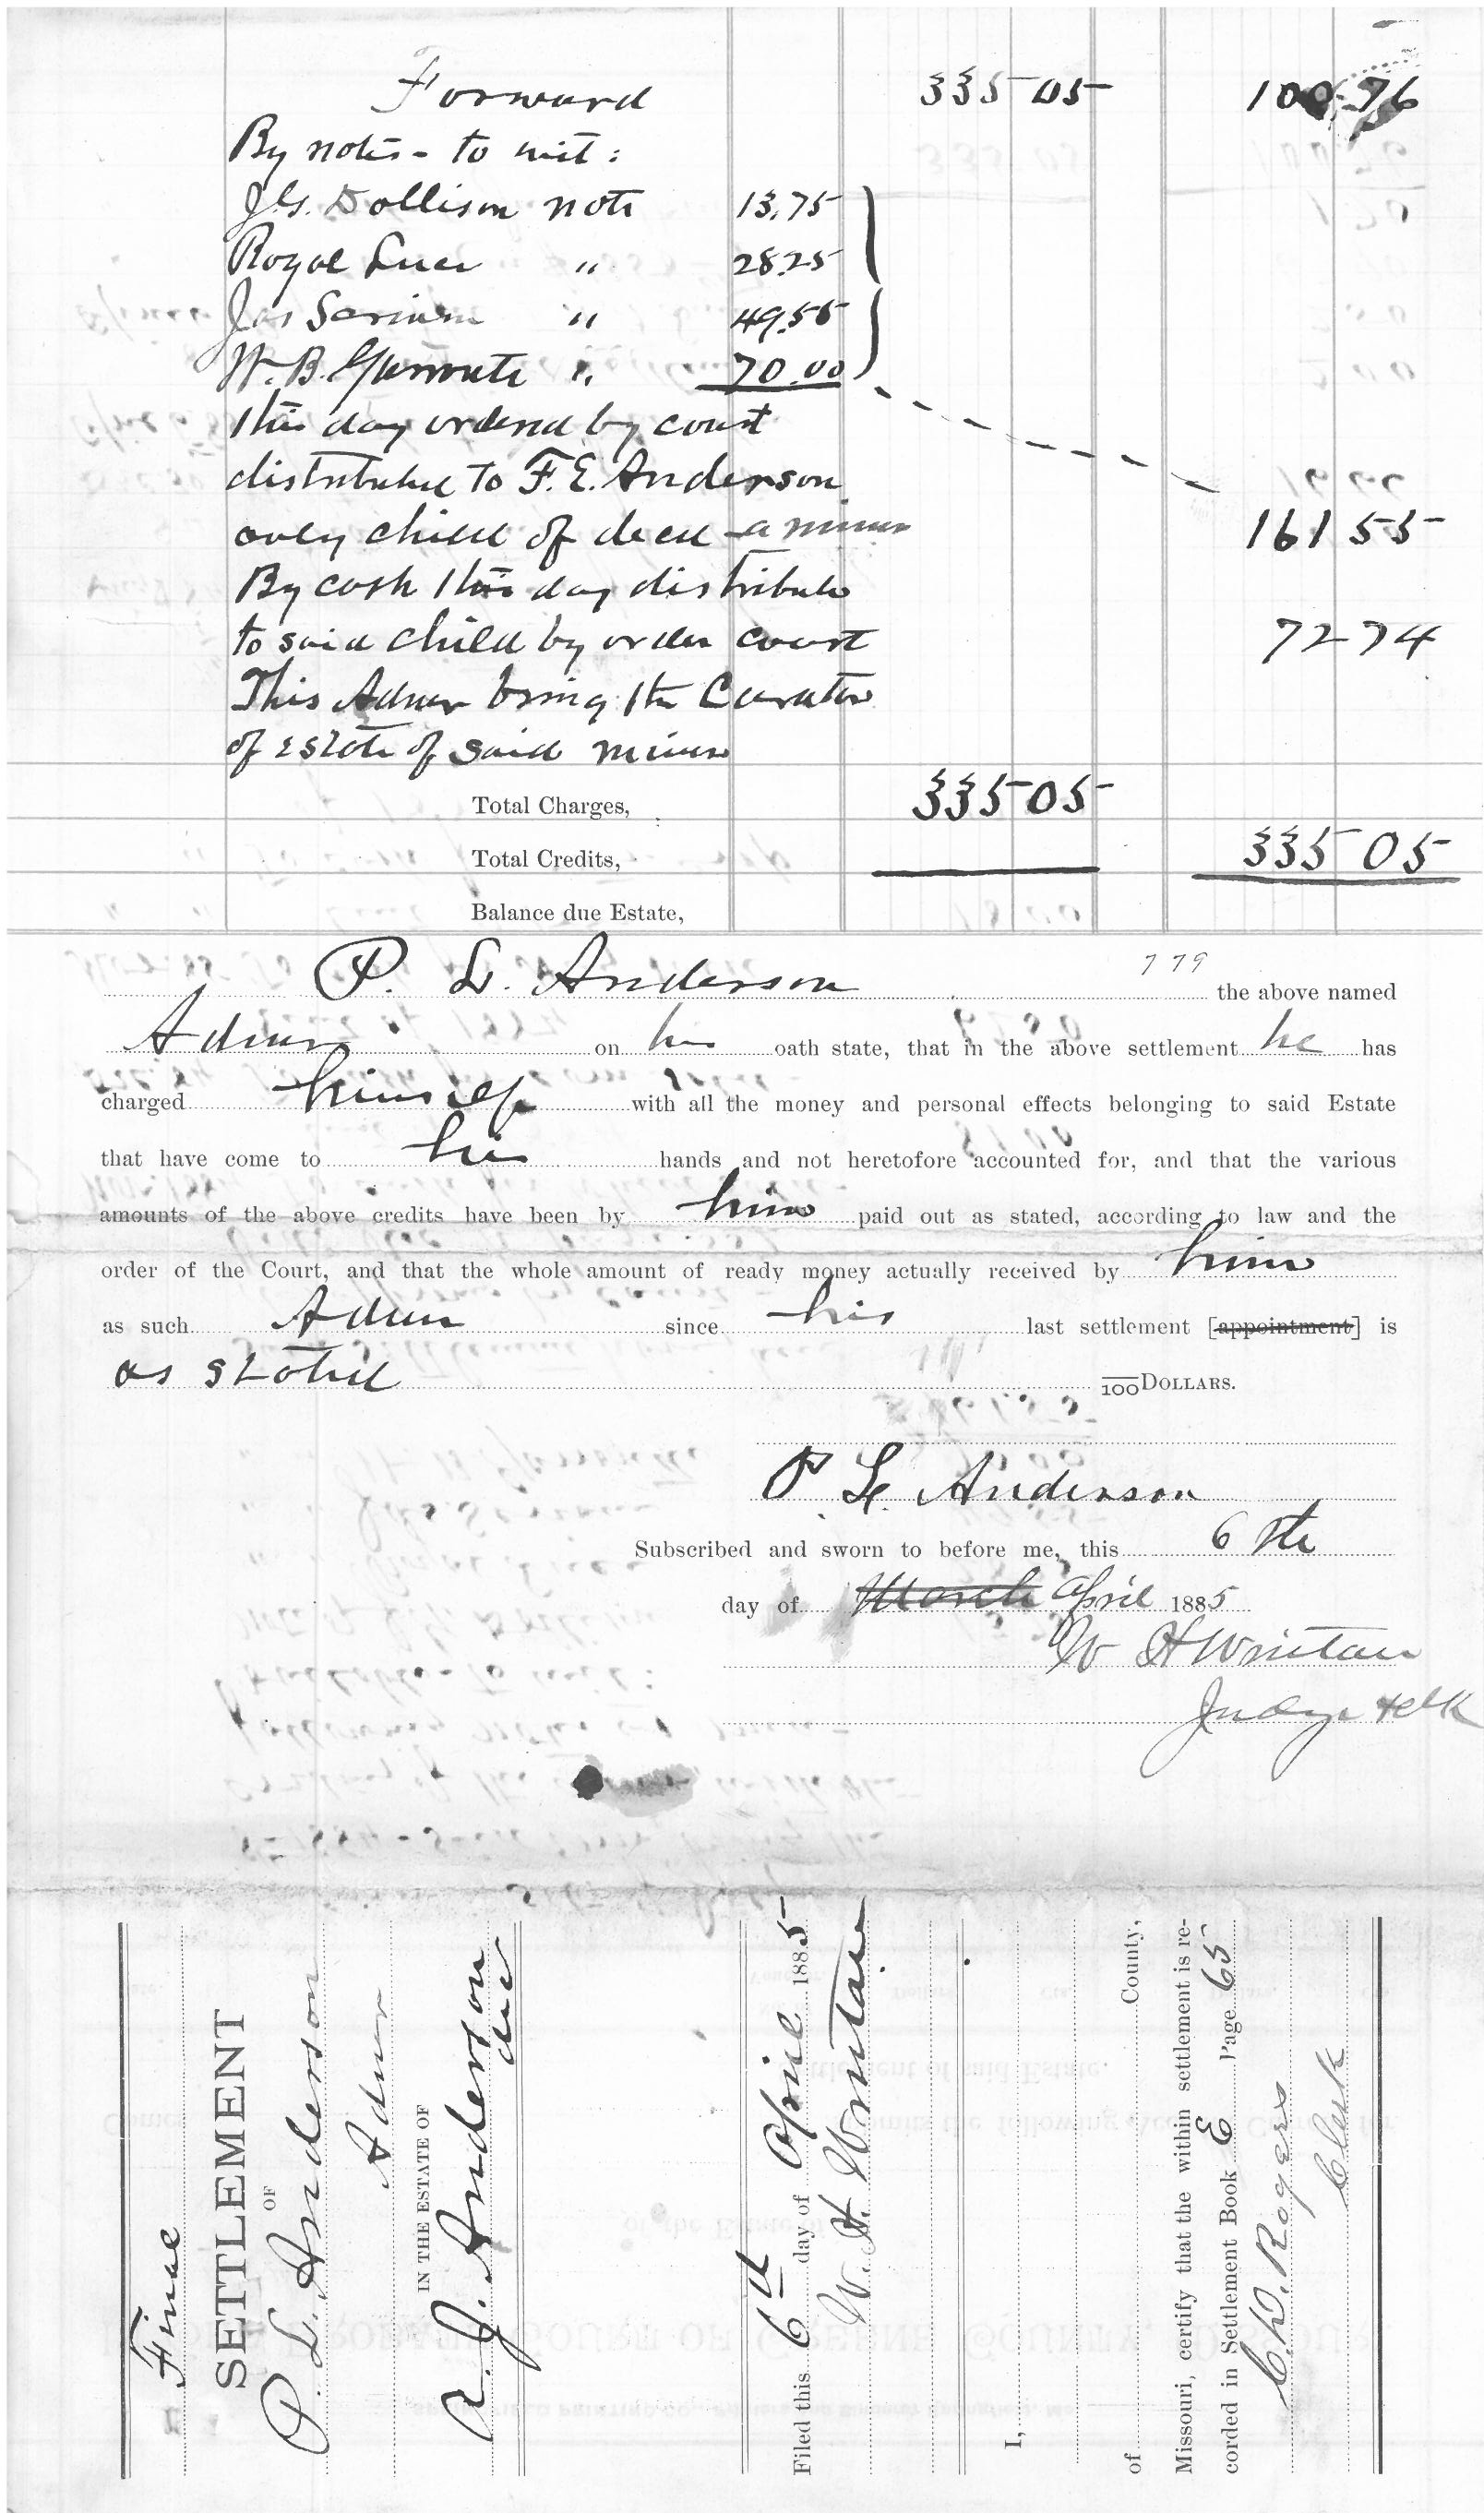 Forward 335 05 100 76
By notes - to wit:
J.G. Dollison note 13.75
Royal " 28.25
Jas " 49.55
W.B. " 70.00
this day ordered by court
distributed to F.E. Anderson
only child of decd - a minor 161 55
By cash this day distribute
to said child by order court 72 74
This Admr being the Curator
of estate of said minor
Total Charges, 335 05
Total Credits, 335 05
Balance due Estate,
P. L. Anderson 779 the above named
Admr on his oath state, that in the above settlement he has
charged himself with all the money and personal effects belonging to said Estate
that have come to his hands and not heretofore accounted for, and that the various
amounts of the above credits have been by him paid out as stated, according to law and the
order of the Court, and that the whole amount of ready money actually received by him
as such Admr since his last settlement [appointment] is
as stated 100 DOLLARS.
P L Anderson
Subscribed and sworn to before me, this 6th
day of March April 1885
W H
Judge & clk
Final
SETTLEMENT
OF
P. L. Anderson
Admr
IN THE ESTATE OF
A. J. Anderson
decd
Filed this 6th day of April 1885
W. H.
I,
of County,
Missouri, certify that the within settlement is re-
corded in Settlement Book E Page 65
C. W. Rogers
Clerk